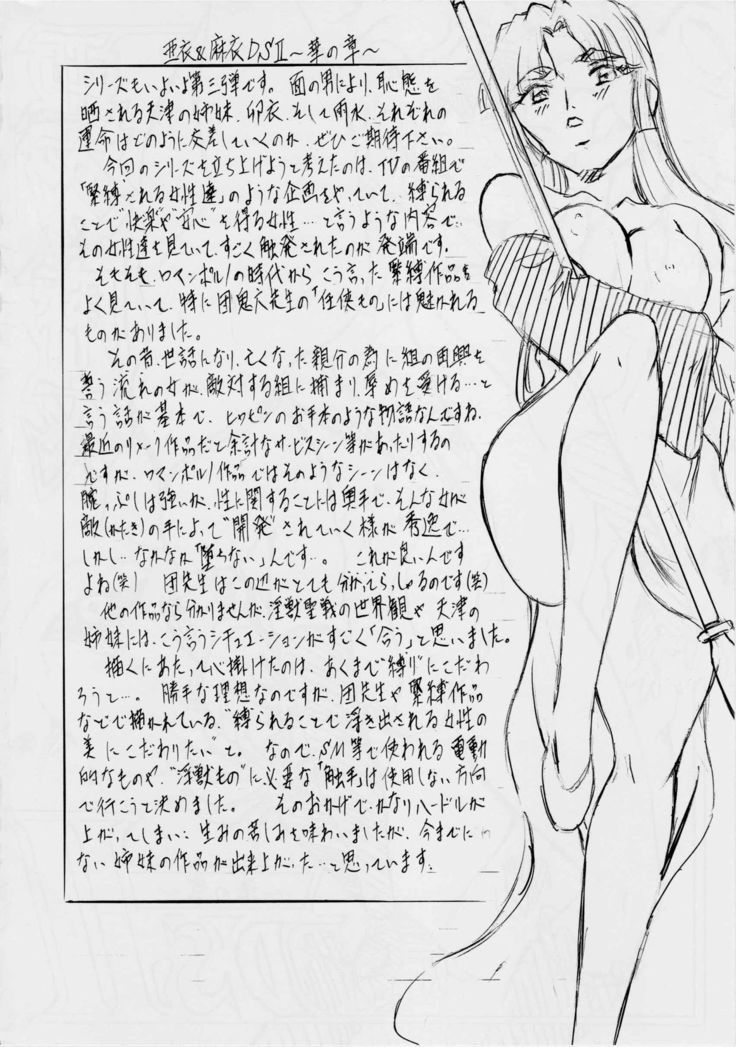 亜衣&麻衣D.SⅡ～華の章～
シリーズもいよいよ第三弾です。 面の男により、恥態を
晒される天津の姉妹、卯衣、そして雨水、それぞれの
運命はどのように交差していくのか、ぜひご期待下さい。
今回のシリーズを立ち上げようと考えたのは、TVの番組で
「緊縛される女性達」のような企画をやっていて、縛られる
ことで"快楽や"安心"を得る女性…と言うような内容で、
その女性達を見ていて、すごく触発されたのが発端です。
そもそも、ロマンポルノの時代からこう言った緊縛作品を
よく見ていて、特に団鬼六先生の「任侠もの」には魅かれる
ものがありました。
その昔、世話になり、亡くなった親分の為に組の再興を
誓う流れの女が、敵対する組に捕まり、辱めを受ける…と
言う話が基本で、ヒロピンのお手本のような物語なんですね、
最近のリメーク作品だと余計なサービスシーン等があったりするの
ですが、ロマンポルノ作品ではそのようなシーンはなく、
腕っぷしは強いが、性に関することには奥手で、そんな女が
敵(かたき)の手によって"開発"されていく様が秀逸で…
しかし…なかなか「堕ちない」んです…。 これが良いんです
よね(笑) 団先生はこの辺がとても分かってらっしゃるのです(笑)
他の作品なら分かりませんが、淫獣聖戦の世界観や天津の
姉妹には、こう言うシチュエーションがすごく「合う」と思いました。
描くにあたって心掛けたのは、あくまで"縛り"にこだわ
ろうと…。 勝手な理想なのですが、団先生や緊縛作品
などで描かれている、"縛られることで浮き出される女性の
美にこだわりたい"と。 なので、SM等で使われる電動
的なものや、"淫獣もの"に必要な「触手」は使用しない方向
で行こうと決めました。 そのおかげで、かなりハードルが
上がってしまい、生みの苦しみを味わいましたが、今までに
ない姉妹の作品が出来上がった…と思っています。